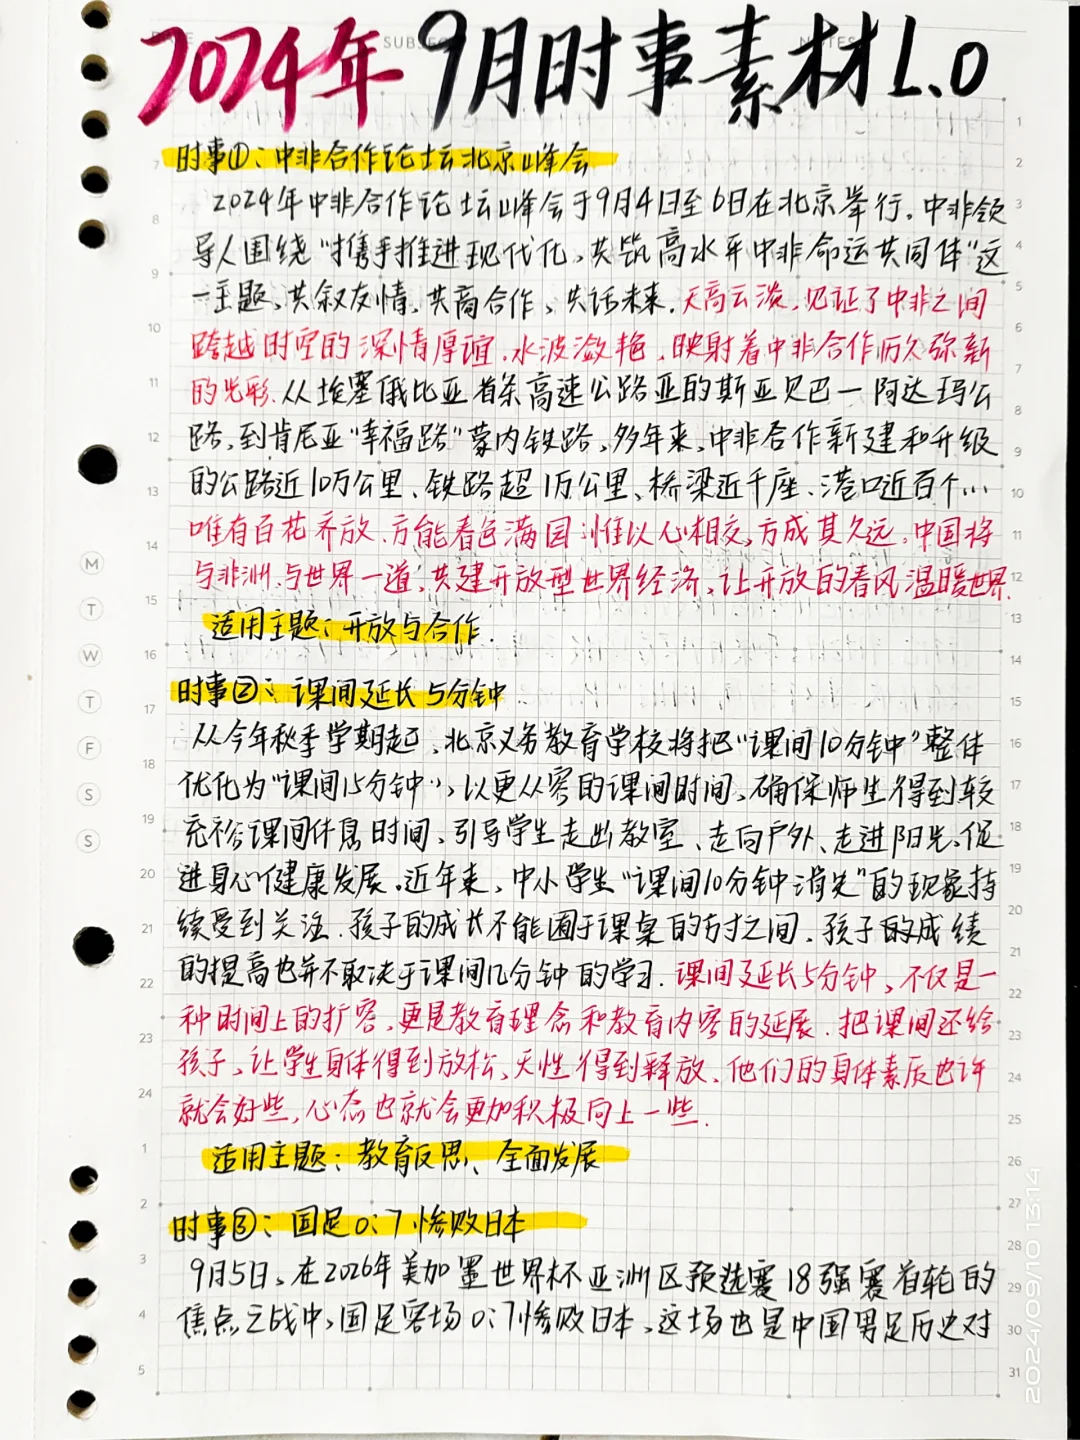 2024年9月时事素材1.0
时事①:中非合作论坛北京峰会
2024年中非合作论坛峰会于9月4日至6日在北京举行。中非领
导人围绕“携手推进现代化,共筑高水平中非命运共同体”这
一主题,共叙友情、共商合作、共话未来.天高云淡,见证了中非之间
跨越时空的深情厚谊.水波潋艳,映射着中非合作历久弥新
的光彩.从埃塞俄比亚首条高速公路亚的斯亚贝巴一阿达玛公
路,到肯尼亚“幸福路”蒙内铁路,多年来,中非合作新建和升级
的公路近10万公里、铁路超1万公里、桥梁近千座、港口近百个…
唯有百花齐放、方能春色满园;惟以心相交,方成其久远。中国将
与非洲、与世界一道,共建开放型世界经济,让开放的春风温暖世界.
适用主题:开放与合作.
时事②:课间延长5分钟
从今年秋季学期起,北京义务教育学校将把“课间10分钟”整体
优化为“课间15分钟”,以更从容的课间时间,确保师生得到较
充裕课间休息时间,引导学生走出教室、走向户外、走进阳光,促
进身心健康发展.近年来,中小学生“课间10分钟消失”的现象持
续受到关注.孩子的成长不能囿于课桌的方寸之间,孩子的成绩
的提高也并不取决于课间几分钟的学习.课间延长5分钟,不仅是一
种时间上的扩容,更是教育理念和教育内容的延展.把课间还给
孩子,让学生身体得到放松,天性得到释放,他们的身体素质也许
就会好些,心态也就会更加积极向上一些.
适用主题:教育反思、全面发展
时事③:国足0:7惨败日本
9月5日,在2026年美加墨世界杯亚洲区预选赛18强赛首轮的
焦点之战中,国足客场0:7惨败日本,这场也是中国男足历史对
2024/09/10 13:14